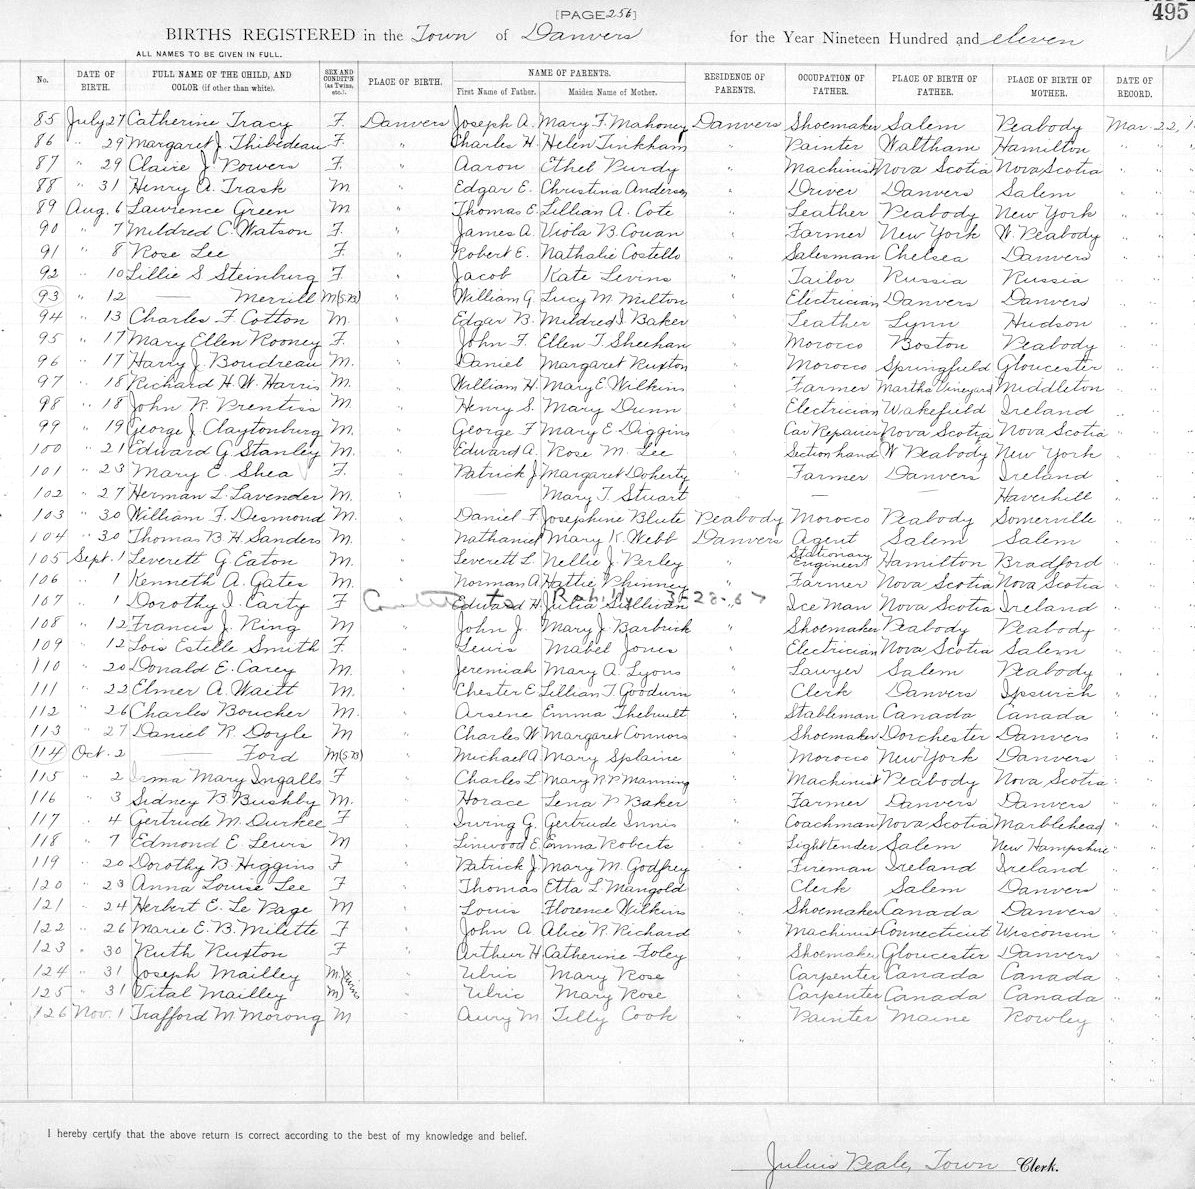 495
[PAGE 256]
BIRTHS REGISTERED in the Town of Danvers for the Year Nineteen Hundred and eleven
ALL NAMES TO BE GIVEN IN FULL.
No. DATE OF BIRTH. FULL NAME OF THE CHILD, AND COLOR (if other than white). SEX AND CONDIT'N (as Twins, etc.). PLACE OF BIRTH. NAME OF PARENTS. First Name of Father. Maiden Name of Mother. RESIDENCE OF PARENTS. OCCUPATION OF FATHER. PLACE OF BIRTH OF FATHER. PLACE OF BIRTH OF MOTHER. DATE OF RECORD.
85 July 27 Catherine Tracy F. Danvers Joseph A. Mary F. Mahoney Danvers Shoemaker Salem Peabody Mar. 22, 1
86 " 29 Margaret J. Thibedeau F. " Charles H. Helen Tinkham " Painter Waltham Hamilton "
87 " 29 Claire J. Powers F. " Aaron Ethel Purdy " Machinist Nova Scotia Nova Scotia "
88 " 31 Henry A. Trask M " Edgar E. Christina Andersen " Driver Danvers Salem "
89 Aug. 6 Lawrence Green M " Thomas E. Lillian A. Cote " Leather Peabody New York "
90 " 7 Mildred C. Watson F. " James A. Viola B. Cowan " Farmer New York W Peabody "
91 " 8 Rose Lee F. " Robert E. Nathalie Costello " Salesman Chelsea Danvers "
92 " 10 Lillie S Steinburg F. " Jacob Kate Levins " Tailor Russia Russia "
93 " 12 — Merrill M(S.B) " William G. Lucy M. Milton " Electrician Danvers Danvers "
94 " 13 Charles F. Cotton M. " Edgar B. Mildred I Baker " Leather Lynn Hudson "
95 " 17 Mary Ellen Rooney F. " John F. Ellen T. Sheehan " Morocco Boston Peabody "
96 " 17 Harry J. Boudreau M. " Daniel Margaret Ruxton " Morocco Springfield Gloucester "
97 " 18 Richard H. W. Harris M. " William H. Mary E. Wilkins " Farmer Martha Vineyard Middleton "
98 " 18 John R. Prentiss M. " Henry S. Mary Dunn " Electrician Wakefield Ireland "
99 " 19 George J Claytonburg M. " George F Mary E Diggins " Car Repairer Nova Scotia Nova Scotia "
100 " 21 Edward G Stanley M. " Edward A. Rose M. Lee " Section hand W Peabody New York "
101 " 23 Mary E. Shea F. " Patrick J. Margaret Doherty " Farmer Danvers Ireland "
102 " 27 Herman L Lavender M. " — Mary T. Stuart " — — Haverhill "
103 " 30 William F. Desmond M. " Daniel F. Josephine Blute Peabody Morocco Peabody Somerville "
104 " 30 Thomas B. H. Sanders M. " Nathaniel Mary K. Webb Danvers Agent Salem Salem "
105 Sept. 1 Leverett G Eaton M. " Leverett L Nellie J. Perley " Stationary Engineer Hamilton Bradford "
106 " 1 Kenneth A. Gates M. " Norman A. Hattie Phinney " Farmer Nova Scotia Nova Scotia "
107 " 1 Dorothy I. Carty F to 3-28-67 Edward H. Julia Sullivan " Ice Man Nova Scotia Ireland "
108 " 12 Francis J. King M " John J. Mary J. Barbrick " Shoemaker Peabody Peabody "
109 " 12 Lois Estelle Smith F. " Lewis Mabel Jones " Electrician Nova Scotia Salem "
110 " 20 Donald E. Carey M. " Jeremiah Mary A. Lyons " Lawyer Salem Peabody "
111 " 22 Elmer A. Waitt M. " Chester E. Lillian T Goodwin " Clerk Danvers Ipswich "
112 " 26 Charles Boucher M. " Arsene Emma Thebault " Stableman Canada Canada "
113 " 27 Daniel R. Doyle M. " Charles W Margaret Connors " Shoemaker Dorchester Danvers "
114 Oct. 2 — Ford M(S.B) " Michael A. Mary Splaine " Morocco New York Danvers "
115 " 2 Irma Mary Ingalls F " Charles L Mary P. Manning " Machinist Peabody Nova Scotia "
116 " 3 Sidney B. Bushby M. " Horace Lena P. Baker " Farmer Danvers Danvers "
117 " 4 Gertrude M. Durkee F " Irving G. Gertrude Innis " Coachman Nova Scotia Marblehead "
118 " 7 Edmond E. Lewis M " Linwood E Emma Roberts " Light tender Salem New Hampshire "
119 " 20 Dorothy B. Higgins F " Patrick J. Mary M. Godfrey " Fireman Ireland Ireland "
120 " 23 Anna Louise Lee F " Thomas Etta L Mangold " Clerk Salem Danvers "
121 " 24 Herbert E. Le Page M " Louis Florence Wilkins " Shoemaker Canada Danvers "
122 " 26 Marie E. B. Milette F " John A Alice R. Richard " Machinist Connecticut Wisconsin "
123 " 30 Ruth Ruxton F " Arthur H Catherine Foley " Shoemaker Gloucester Danvers "
124 " 31 Joseph Mailley M) twins " Ulric Mary Rose " Carpenter Canada Canada "
125 " 31 Vital Mailley M) " Ulric Mary Rose " Carpenter Canada Canada "
126 Nov. 1 Trafford M. Morong M " Aury M Tilly Cook " Painter Maine Rowley "
I hereby certify that the above return is correct according to the best of my knowledge and belief.
Julius Peale, Town Clerk.